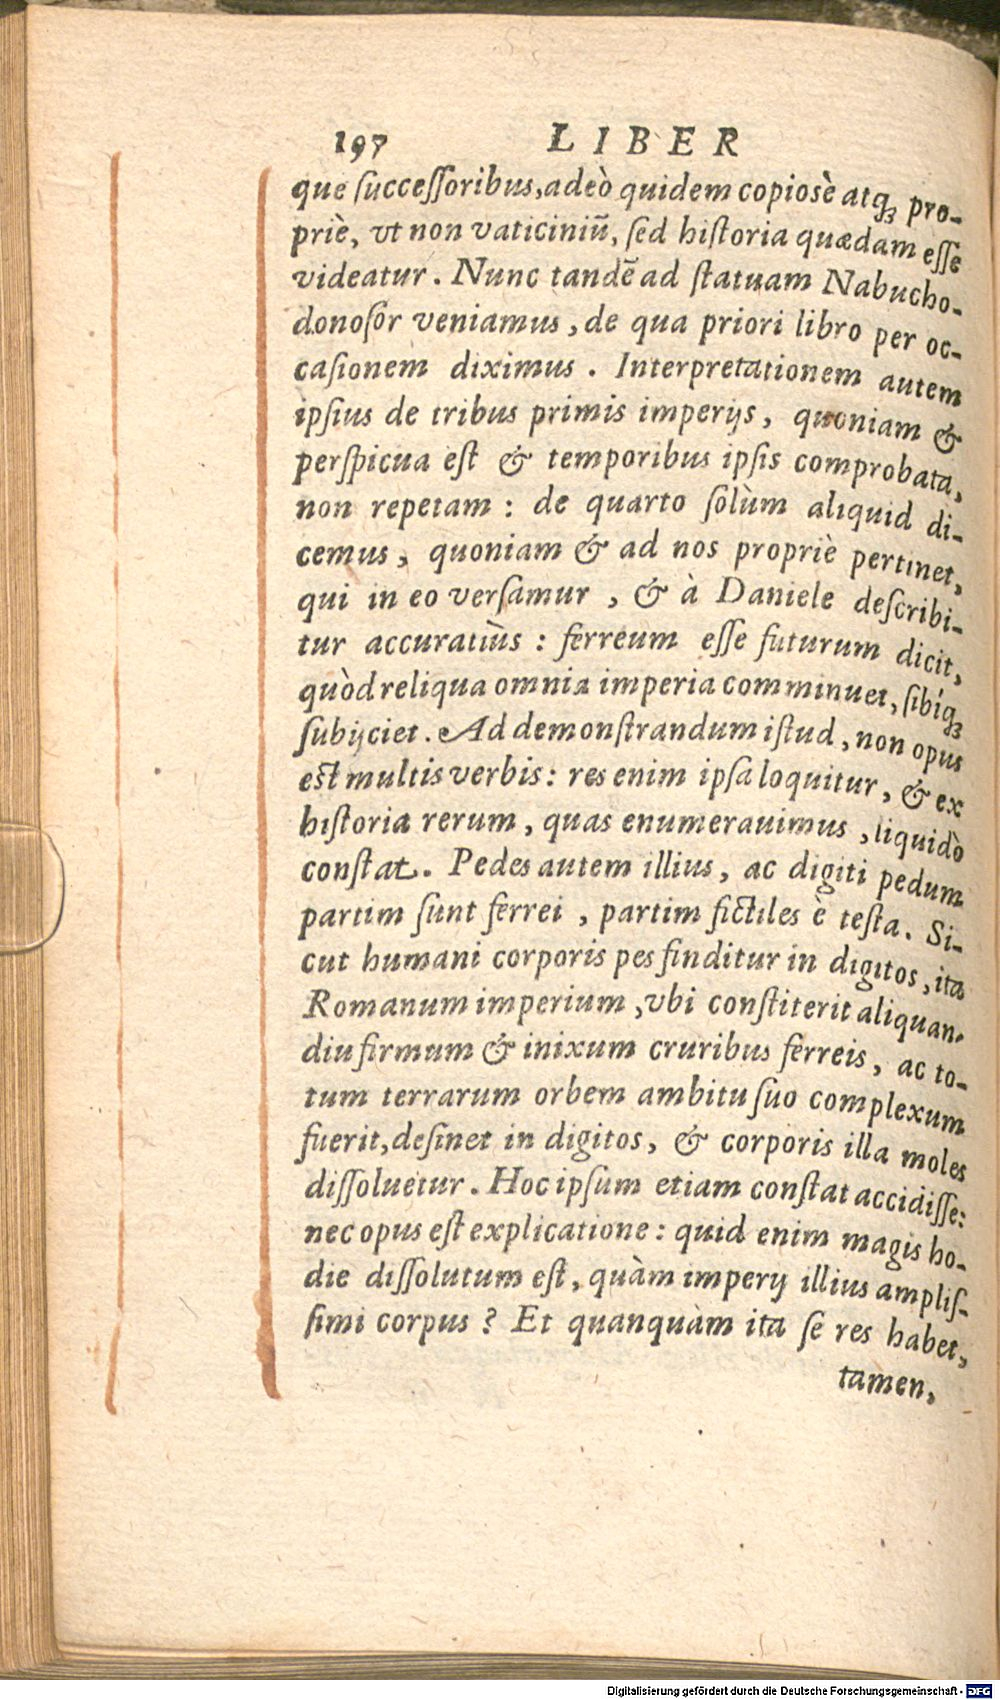 197 LIBER
que ſucceſſoribus, adeò quidem copiosè atq; pro-
priè, vt non vaticiniū, ſed hiſtoria quædam eſſe
videatur. Nunc tandē ad ſtatuam Nabucho-
donoſor veniamus, de qua priori libro per oc-
caſionem diximus. Interpretationem autem
ipſius de tribus primis imperijs, quoniam &
perſpicua eſt & temporibus ipſis comprobata,
non repetam: de quarto ſolùm aliquid di-
cemus, quoniam & ad nos propriè pertinet,
qui in eo verſamur, & à Daniele deſcribi-
tur accuratiùs: ferreum eſſe futurum dicit,
quòd reliqua omnia imperia comminuet, ſibíq;
ſubijciet. Ad demonſtrandum iſtud, non opus
eſt multis verbis: res enim ipſa loquitur, & ex
hiſtoria rerum, quas enumerauimus, liquidò
conſtat. Pedes autem illius, ac digiti pedum
partim ſunt ferrei, partim fictiles è teſta. Si-
cut humani corporis pes finditur in digitos, ita
Romanum imperium, vbi conſtiterit aliquan-
diu firmum & inixum cruribus ferreis, ac to-
tum terrarum orbem ambitu ſuo complexum
fuerit, deſinet in digitos, & corporis illa moles
diſſoluetur. Hoc ipſum etiam conſtat accidiſſe:
nec opus eſt explicatione: quid enim magis ho-
die diſſolutum eſt, quàm imperij illius ampliſ-
ſimi corpus? Et quanquàm ita ſe res habet,
tamen,
Digitalisierung gefördert durch die Deutsche Forschungsgemeinschaft - DFG